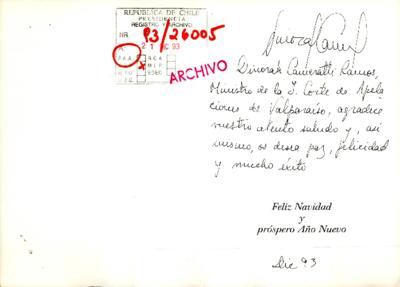 REPUBLICA DE CHILE
PRESIDENCIA
REGISTRO Y ARCHIVO
NR 93/26005
A 21 DIC 93
P.A.A. R.C.A.
M.L.P.
ARCHIVO
Dinorah Cameratti Ramos,
Ministro de la I. Corte de Apela
ciones de Valparaíso, agradece
vuestro atento saludo y, así
mismo, os desea paz, felicidad
y mucho éxito
Feliz Navidad
y
próspero Año Nuevo
Dic 93